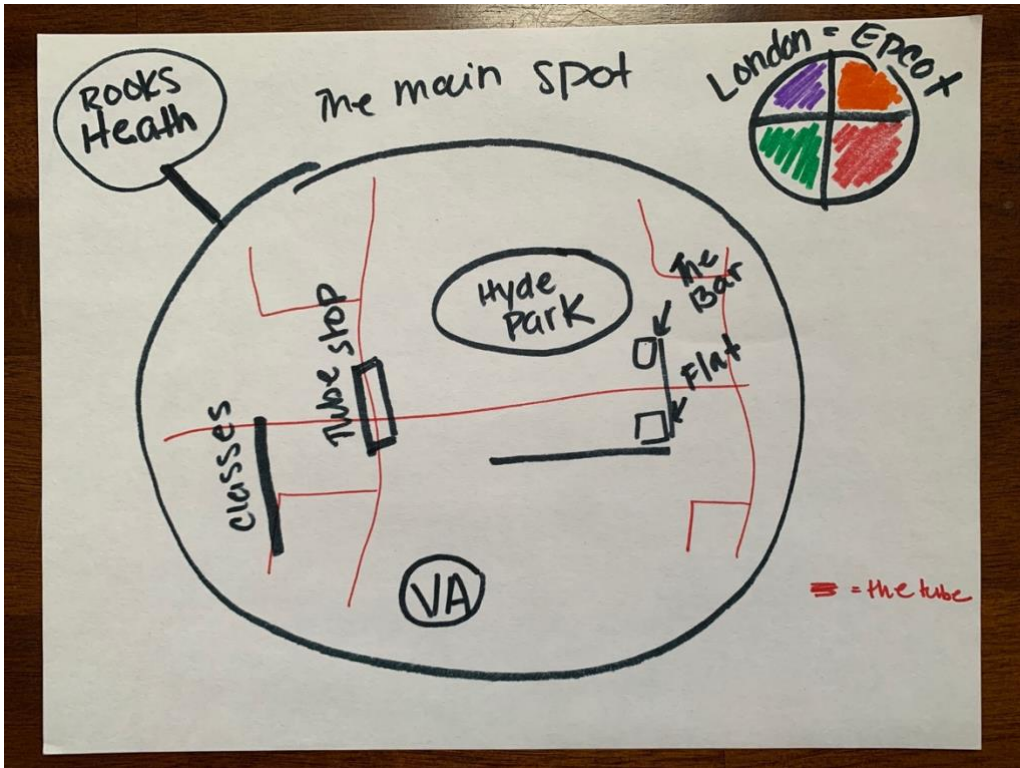 ROOKS
Heath
The main spot
London = Epcot
Hyde
Park
The
Bar
Flat
Tube stop
classes
VA
= the tube